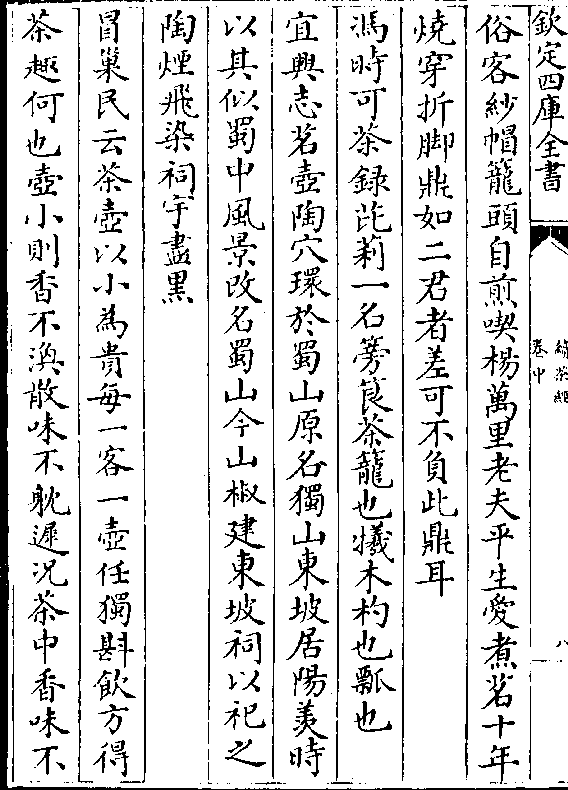 欽定四庫全書
續茶經
卷中
八
俗客紗帽籠頭自煎喫楊萬里老夫平生愛煮茗十年
燒穿折脚鼎如二君者差可不負此鼎耳
馮時可茶録芘莉一名篣筤茶籠也犧木杓也瓢也
宜興志茗壺陶穴環於蜀山原名獨山東坡居陽羨時
以其似蜀中風景改名蜀山今山椒建東坡祠以祀之
陶煙飛染祠宇盡黑
冒巢民云茶壺以小為貴每一客一壺任獨斟飲方得
茶趣何也壺小則香不渙散味不躭遲况茶中香味不